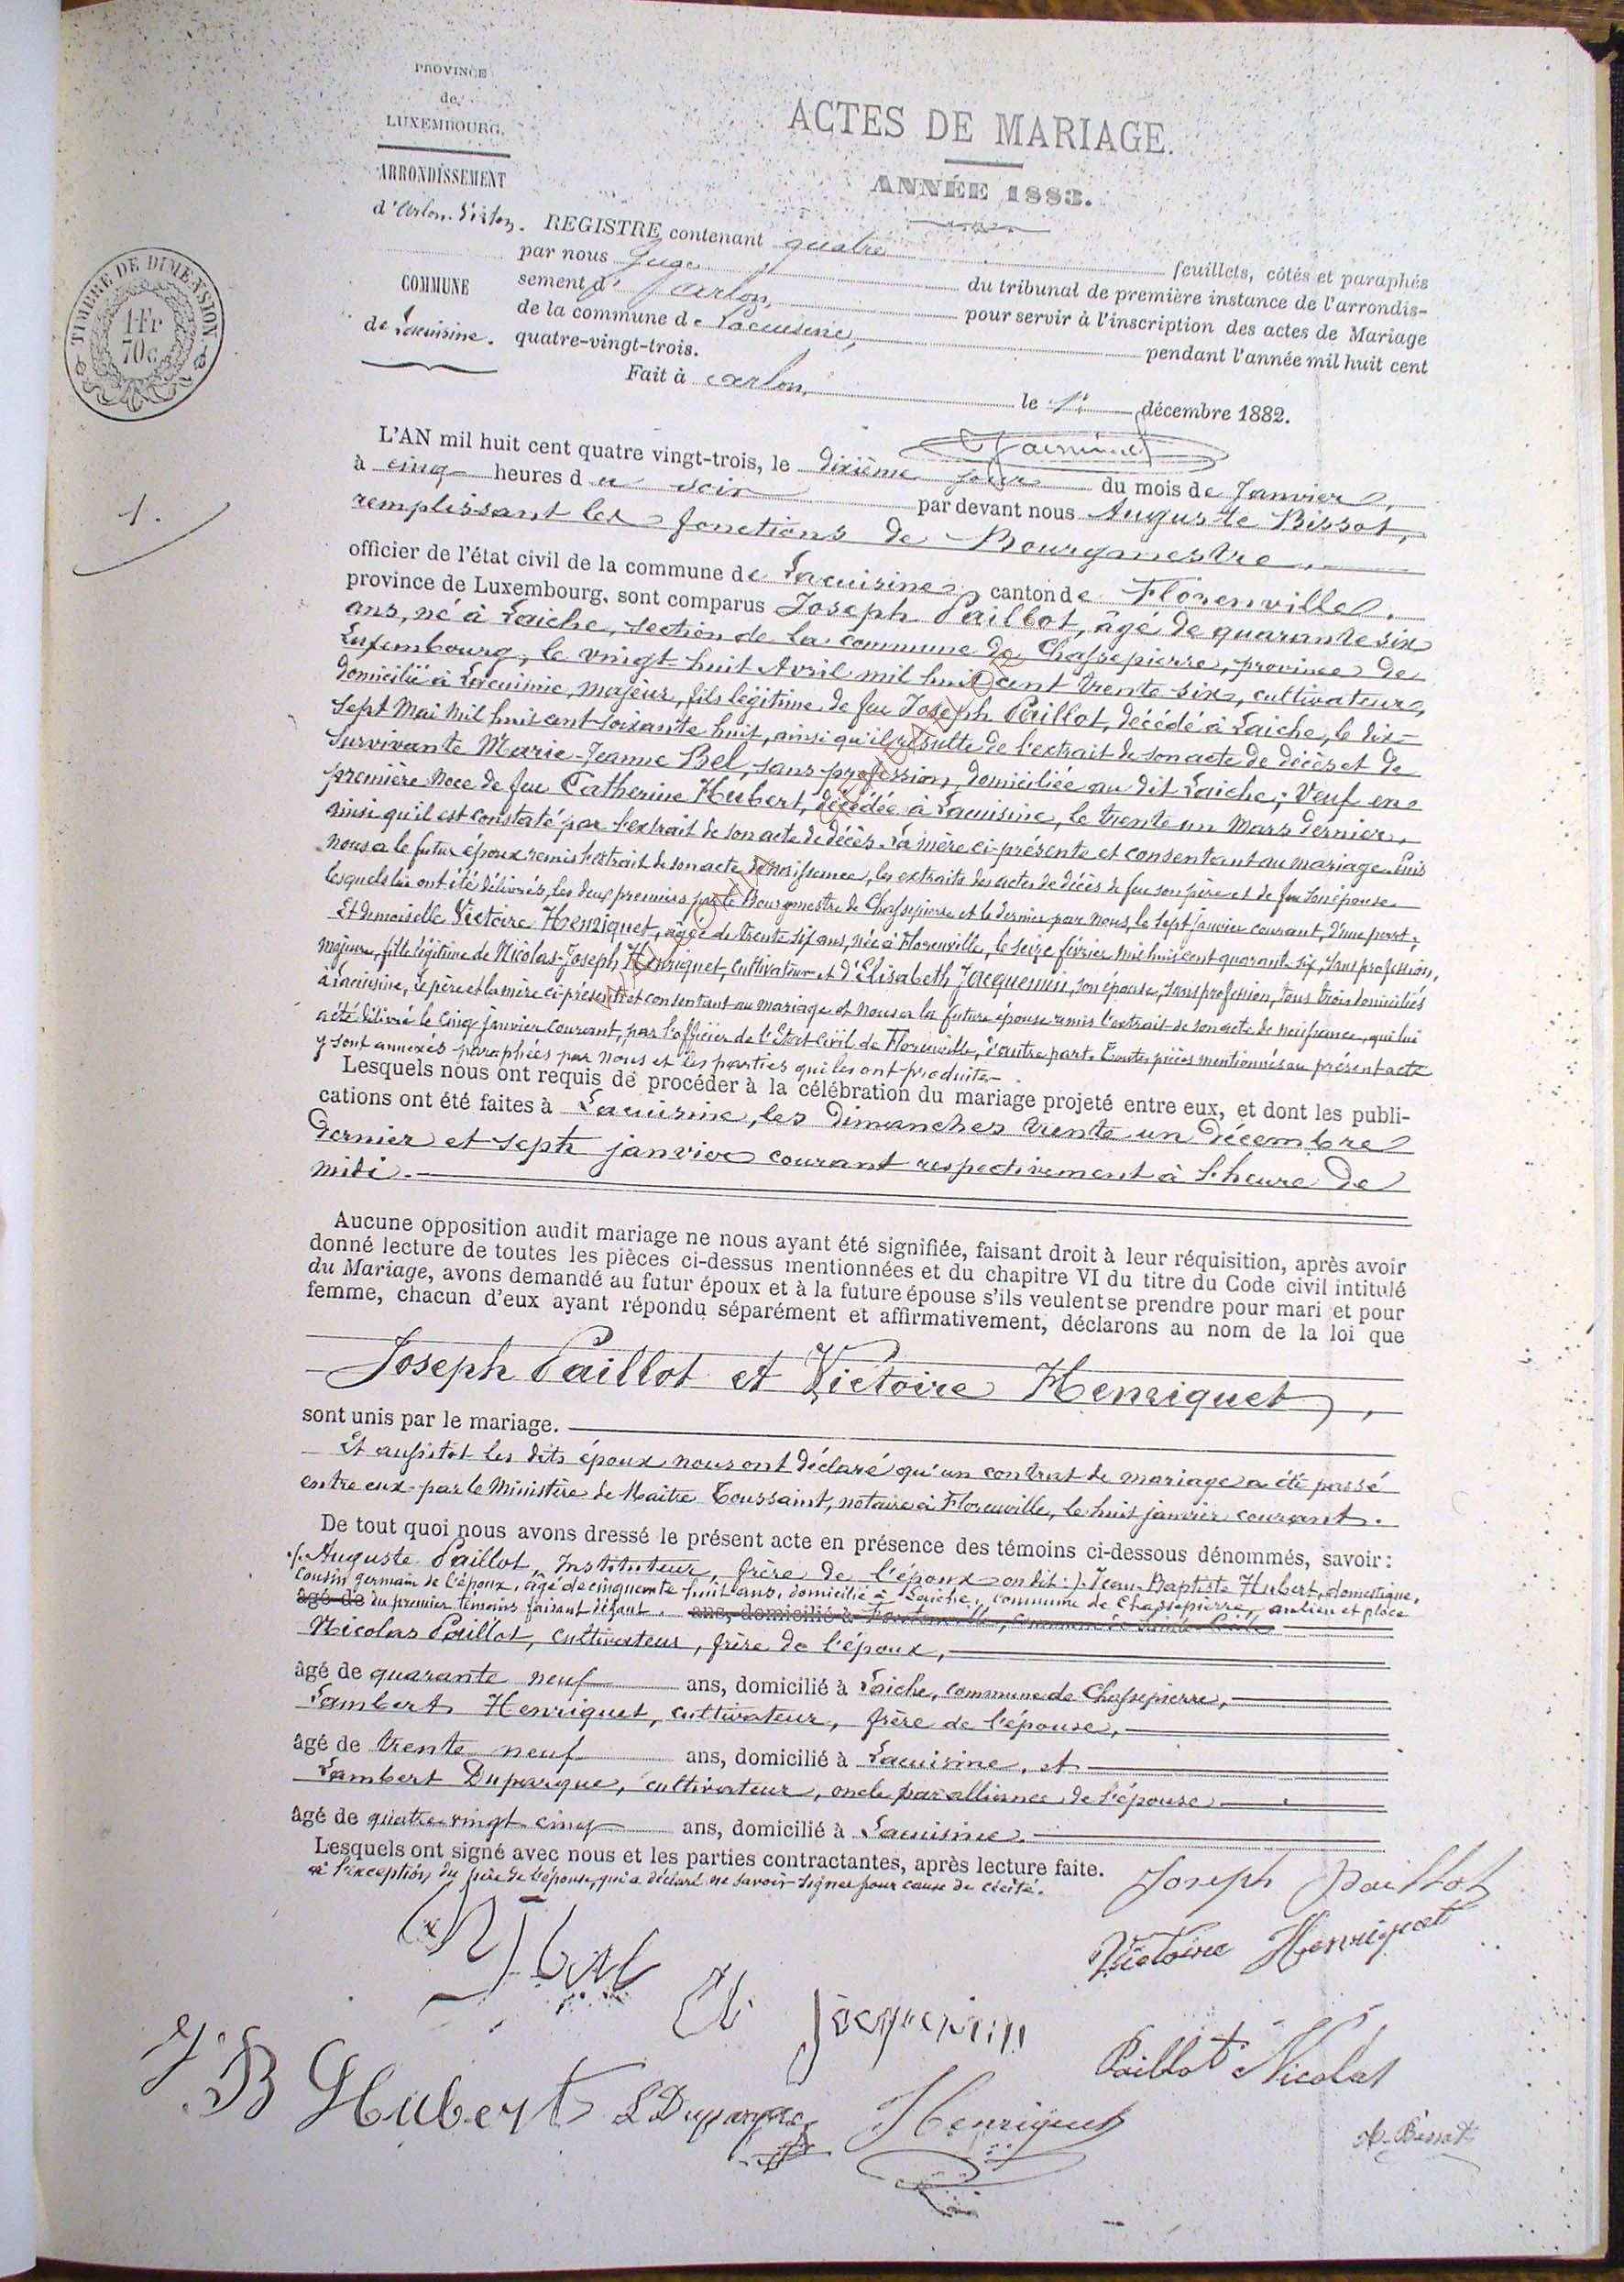 PROVINCE
de
LUXEMBOURG.
ARRONDISSEMENT
d'Arlon-Virton.
COMMUNE
de Lacuisine.
TIMBRE DE DIMENSION
1 Fr
70 c
1.
ACTES DE MARIAGE.
ANNÉE 1883.
REGISTRE contenant quatre feuillets, côtés et paraphés
par nous Juge du tribunal de première instance de l'arrondis-
sement d' Arlon, pour servir à l'inscription des actes de Mariage
de la commune de Lacuisine, pendant l'année mil huit cent
quatre-vingt-trois.
Fait à Arlon, le 1er décembre 1882.
L'AN mil huit cent quatre vingt-trois, le dixième jour du mois de Janvier,
à cinq heures du soir par devant nous Auguste Bissot,
remplissant les fonctions de Bourgmestre,
officier de l'état civil de la commune de Lacuisine, canton de Florenville,
province de Luxembourg, sont comparus Joseph Paillot, âgé de quarante six
ans, né à Laiche, section de la commune de Chassepierre, province de
Luxembourg, le vingt huit Avril mil huit cent trente six, cultivateur,
domicilié à Lacuisine, majeur, fils légitime de feu Joseph Paillot, décédé à Laiche, le dix-
sept Mai mil huit cent soixante huit, ainsi qu'il résulte de l'extrait de son acte de décès et de
survivante Marie-Jeanne Bel, sans profession, domiciliée au dit Laiche; Veuf en
première noce de feu Catherine Hubert, décédée à Lacuisine, le trente un Mars dernier,
ainsi qu'il est constaté par l'extrait de son acte de décès. La mère ci-présente et consentant au mariage. Puis
nous a le futur époux remis l'extrait de son acte de naissance, les extraits des actes de décès de feu son père et de feu son épouse
lesquels lui ont été délivrés, les deux premiers par le Bourgmestre de Chassepierre et le dernier par nous, le sept Janvier courant, d'une part;
Et demoiselle Victoire Henriquet, âgée de trente six ans, née à Florenville, le seize février mil huit cent quarante six, sans profession,
majeure, fille légitime de Nicolas-Joseph Henriquet, cultivateur et d'Elisabeth Jacquemin, son épouse, sans profession, tous trois domiciliés
à Lacuisine, le père et la mère ci-présents et consentant au mariage et nous a la future épouse remis l'extrait de son acte de naissance, qui lui
a été délivré le cinq janvier courant, par l'officier de l'Etat-Civil de Florenville, d'autre part. Toutes pièces mentionnées au présent acte
y sont annexés paraphées par nous et les parties qui les ont produites
Lesquels nous ont requis de procéder à la célébration du mariage projeté entre eux, et dont les publi-
cations ont été faites à Lacuisine, les dimanches trente un décembre
dernier et sept janvier courant respectivement à l'heure de
midi.
Aucune opposition audit mariage ne nous ayant été signifiée, faisant droit à leur réquisition, après avoir
donné lecture de toutes les pièces ci-dessus mentionnées et du chapitre VI du titre du Code civil intitulé
du Mariage, avons demandé au futur époux et à la future épouse s'ils veulent se prendre pour mari et pour
femme, chacun d'eux ayant répondu séparément et affirmativement, déclarons au nom de la loi que
Joseph Paillot et Victoire Henriquet,
sont unis par le mariage.
Et aussitot les dits époux nous ont déclaré qu'un contrat de mariage a été passé
entre eux par le Ministère de Maître Toussaint, notaire à Florenville, le huit janvier courant.
De tout quoi nous avons dressé le présent acte en présence des témoins ci-dessous dénommés, savoir:
Auguste Paillot, Instituteur, frère de l'époux on dit:) Jean-Baptiste Hubert, domestique,
cousin germain de l'époux, âgé de cinquante huit ans, domicilié à Laiche, commune de Chassepierre, au lieu et place
âgé de du premier témoins faisant défaut. ans, domicilié à commune de Sainte Cécile
Nicolas Paillot, cultivateur, frère de l'époux,
âgé de quarante neuf ans, domicilié à Laiche, commune de Chassepierre,
Lambert Henriquet, cultivateur, frère de l'épouse,
âgé de trente neuf ans, domicilié à Lacuisine, et
Lambert Duparque, cultivateur, oncle par alliance de l'épouse
âgé de quatre vingt cinq ans, domicilié à Lacuisine.
Lesquels ont signé avec nous et les parties contractantes, après lecture faite.
à l'exception du père de l'épouse, qui a déclaré ne savoir signer pour cause de cécité.
Joseph Paillot
Victoire Henriquet
Jacquemin
Paillot Nicolas
J B Hubert
L Duparque
Henriquet
A. Bissot